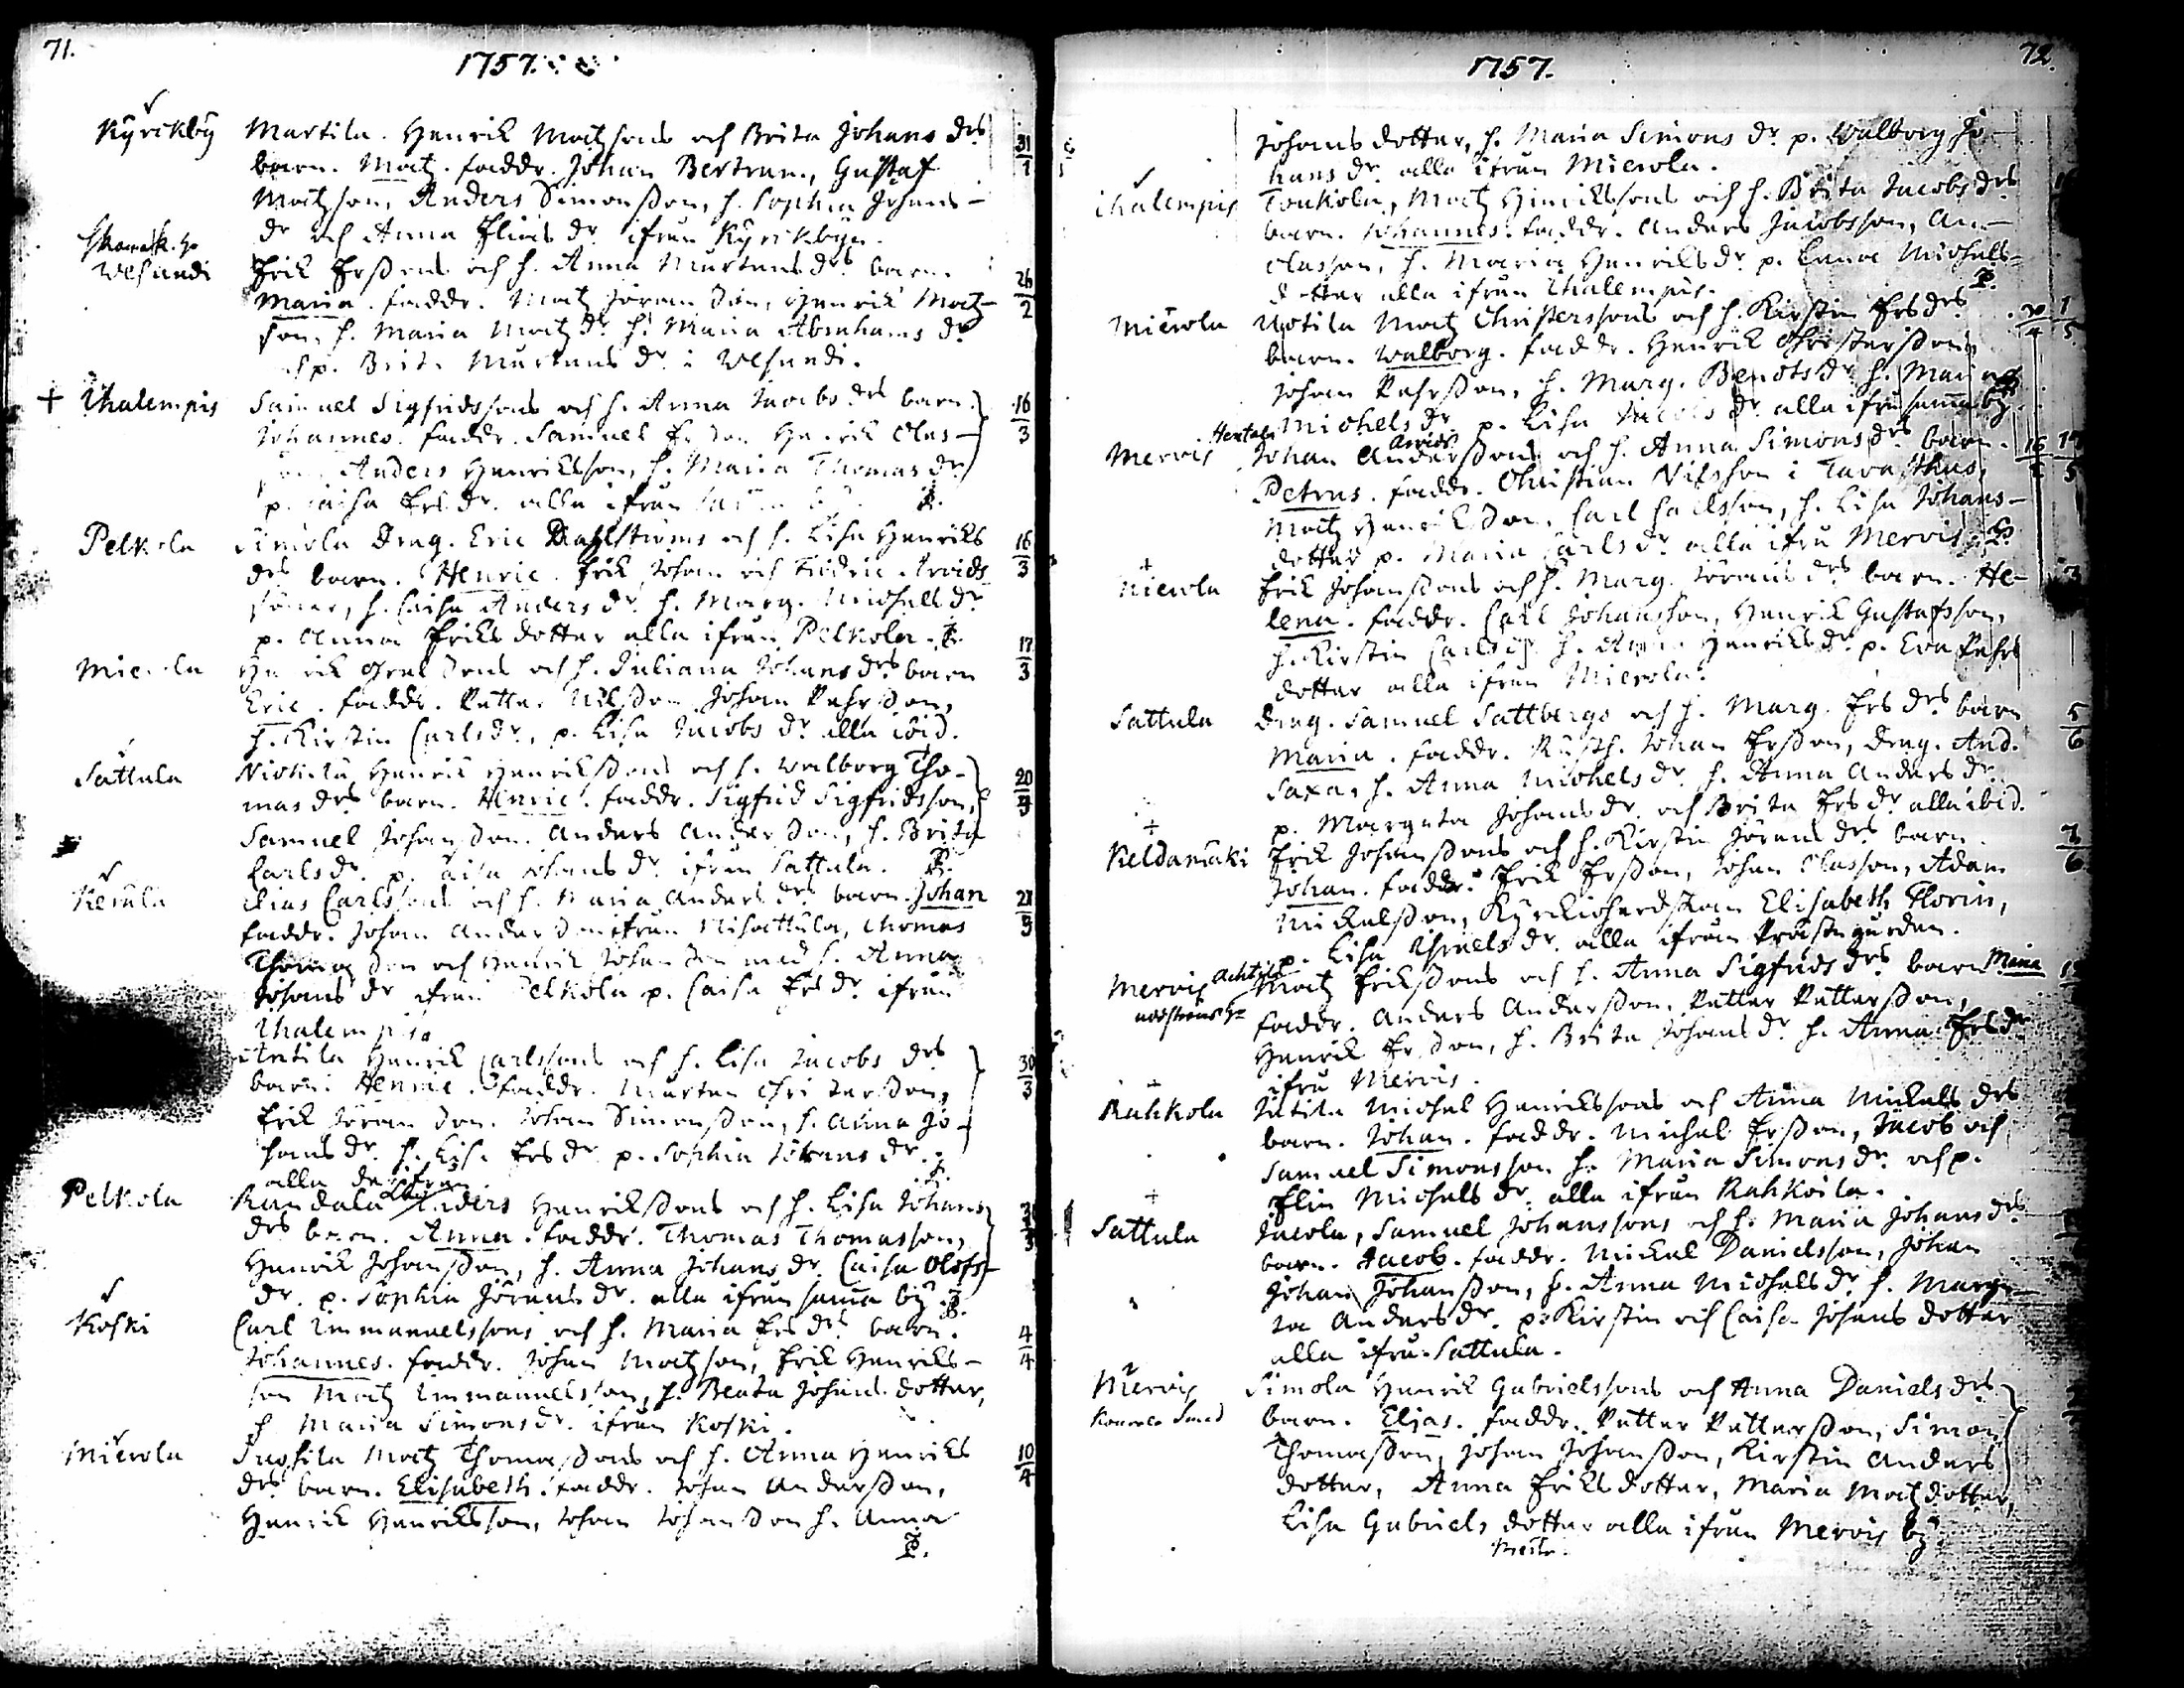 71.
1757.
Kyrickby Martila. Henrik Matzsons och Brita Johans drs 31/1
barn. Matz. faddr. Johan Bertram, Gustaf
Matzson, Anders Simonsson, h. Sophia Johans-
dr och Anna Elias dr ifrån Kyrickbyn.
Vesundi Erik Erssons och h. Anna Mårtens drs barn. 26/2
Maria. faddr. Matz Jöransson, Henrik Matz-
son, h. Maria Matz dr h. Maria Abrahams dr
och p. Brita Mårtens dr i Vesundi.
+ Thalempis Samuel Sigfridssons och h. Anna Jacobs drs barn. 16/3
Johannes. faddr. Samuel Henrik Clas-
son Anders Henriksson, h. Maria Thomas dr
p. Caisa Ers dr. alla ifrån
Pelkola Simola Drag. Eric Dahlströms och h. Lisa Henriks 16/3
drs barn. Henric. Erik Johan och Fredric Arvids
söner, h. Caisa Anders dr. h. Marg. Michells dr
p. Anna Eriks dotter alla ifrån Pelkola.
Mierola Henrik Grelssons och h. Juliana Johans drs barn 17/3
Eric. faddr. Petter Nilsson Johan Pehrsson,
h. Kirstin Carls dr, p. Lisa Jacobs dr alla ibid.
Sattula Henric Henrikssons och h. Walborg Tho- 20/3
mas drs barn. Henric. faddr. Sigfrid Sigfridsson,
Samuel Johansson. Anders Andersson, h. Brita
Carls dr. p. Caisa Johans dr. ifrån Sattula.
Elias Carlssons och h. Maria Anders drs barn. Johan 28/3
faddr. Johan Andersson ifrån Thomas
Thomasson och Henrik Johansson med h. Anna
Johans dr ifrån Pelkola p. Caisa Ers dr. ifrån
Thalempis.
Antila Henrik Carlssons och h. Lisa Jacobs drs 30/3
barn. Henric. faddr. Mårten Christersson,
Erik Jöransson. Johan Simonsson, h. Anna Jo-
hans dr. h. Lisa Ers dr p. Sophia Johans dr.
alla
Pelkola Kandala Anders Henrikssons och h. Lisa Johans
drs barn. Anna. faddr. Thomas Thomasson,
Henrik Johansson, h. Anna Johans dr. Caisa Olofs-
dr. p. Sophia Jörans dr. alla ifrån sama by.
Koski Carl Immanuelssons och h. Maria Ers drs barn. 4/4
Johannes. faddr. Johan Matzson, Erik Henriks-
son Matz Immanuelsson, h. Beata Johans dotter,
h Maria Simons dr. ifrån Koski.
Mierola Jussila Matz Thomassons och h. Anna Henriks 10/4
drs barn. Elisabeth. faddr. Johan Andersson,
Henrik Henriksson, Johan Johansson h. Anna
72.
1757.
Johans dotter, h. Maria Simons dr p. Walborg Jo-
hans dr. alla ifrån Mierola.
Thalempis Toukola, Matz Hinrikssons och h. Brita Jacobs drs
barn. Johannes. faddr. Anders Jacobsson, An-
Classon, h. Maria Henriks dr. p. Lena Michels-
dotter alla ifrån Thalempis.
Mierola Uotila Matz Christerssons och h. Kirstin Ers drs 1/5
barn. Walborg. faddr. Henrik Christersson,
Johan Pehrsson, h. Marg. Bengts dr h. Maria
Michels dr. p. Lisa Jacobs dr. alla ifrå sama by
Mervis Johan Anderssons och h. Anna Simons drs barn.
Petrus. faddr. Christian Nilsson i Tavasthus,
Matz Henriksson, Carl Carlsson, h. Lisa Johans-
dotter p. Maria Carls dr. alla ifrå Mervis.
+
Mierola Erik Johanssons och h. Marg. Jörans drs barn. He-
lena. faddr. Carl Johansson, Henrik Gustafsson,
h. Kirstin Carls dr h. Anna Henriks dr. p. Eva Pehrs
dotter alla ifrån Mierola.
Sattula Drag. Samuel Sattbergs och h. Marg. Ers drs barn 5/6
Maria. faddr. Rusth. Johan Ersson, drag. And.
Saxa, h. Anna Michels dr h. Anna Anders dr.
p. Margeta Johans dr. och Brita Ers dr. alla ibid.
+
Keldamäki Erik Johanssons och h. Kirstin Jörans drs barn
Johan. faddr. Erik Ersson, Johan Classon, Adam
Mickelsson, Elisabeth Florin,
p. Lisa Israels dr. alla ifrån Prästegården.
Mervis Matz Erikssons och h. Anna Sigfrids drs barn Maria
faddr. Anders Andersson. Petter Pettersson,
Henrik Ersson, h. Brita Johans dr h. Anna Ers dr
ifrå Mervis.
+
Rahkola Michel Henrikssons och Anna Mickels drs
barn. Johan. faddr. Michel Ersson, Jacob och
Samuel Simonsson h. Maria Simons dr. och p.
Elin Michels dr. alla ifrån Rahkoila.
+
Sattula Jacola, Samuel Johanssons och h. Maria Johans drs
barn. Jacob. faddr. Mickel Danielsson, Johan
Johan Johansson, h. Anna Michels dr h. Marge-
ta Anders dr. p. Kirstin och Caisa Johans dotter
alla ifrå Sattula.
Mervis Simola Henrik Gabrielssons och Anna Daniels drs
barn. Elias. faddr. Petter Pettersson, Simon
Thomasson, Johan Johansson, Kirstin Anders
dotter, Anna Eriks dotter, Maria Matz dotter,
Lisa Gabriels dotter alla ifrån Mervis by.